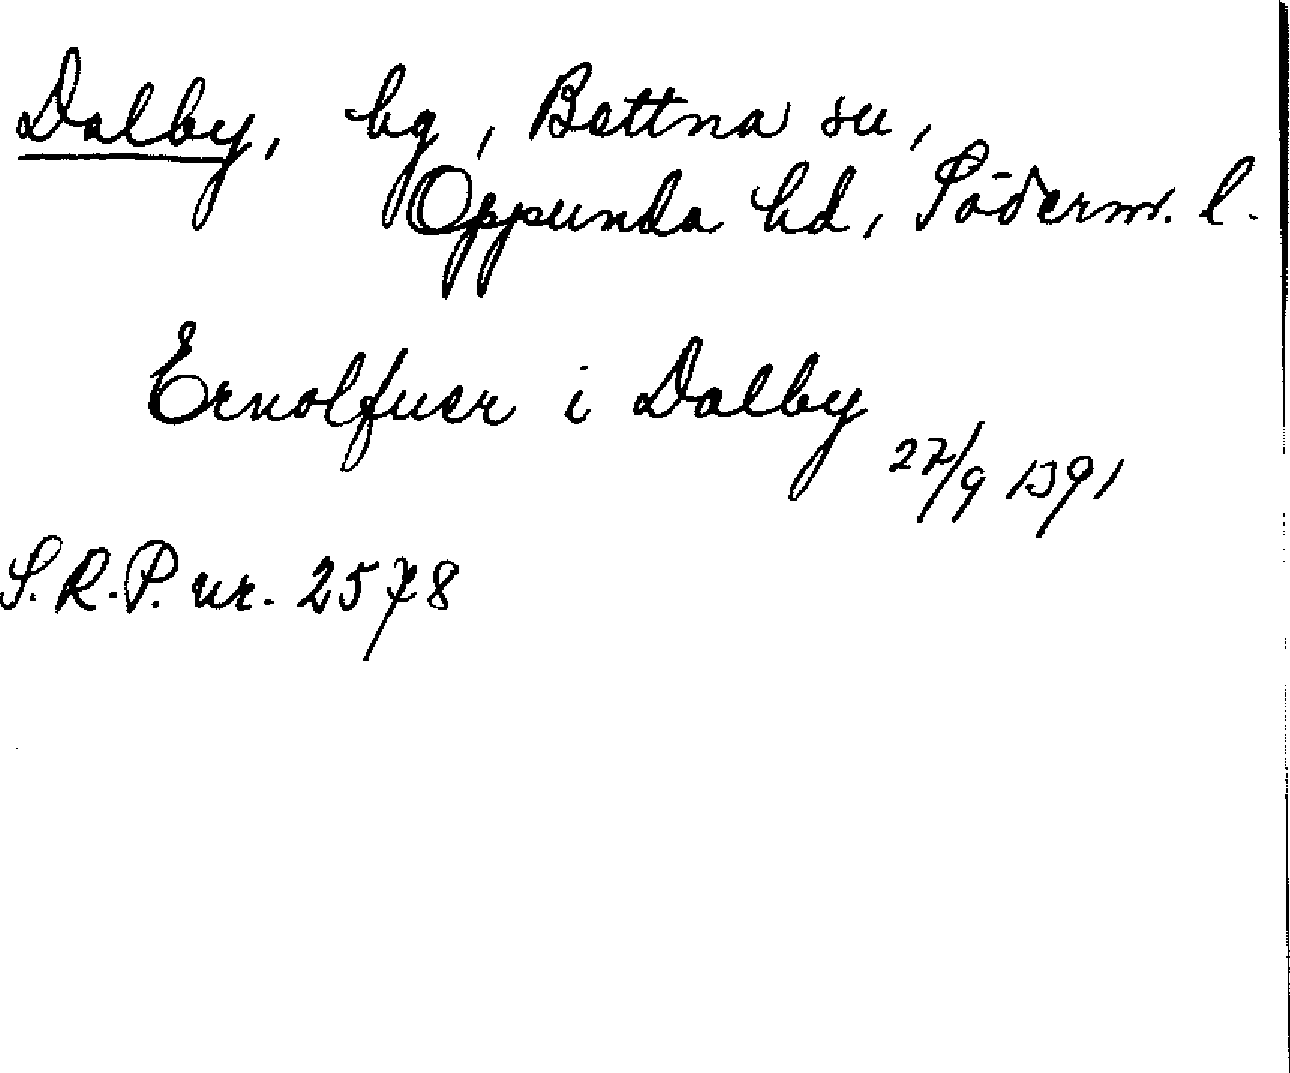 Dalby, bg, Bettna sn,
Oppunda hd, Söderm. l.
Ernolfuer i Dalby
27/9 1391
S.R.P. nr. 2578